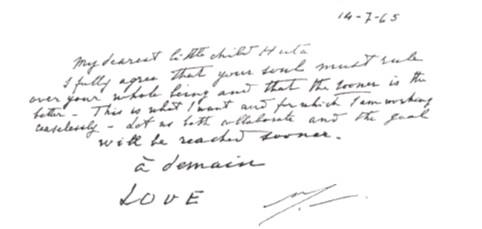 14-7-65
My dearest little child Huta
I fully agree that your soul must rule
over your whole being and that the sooner is the
better – This is what I want and for which I am working
ceaselessly – Let us both collaborate and the goal
will be reached sooner.
à demain
LOVE